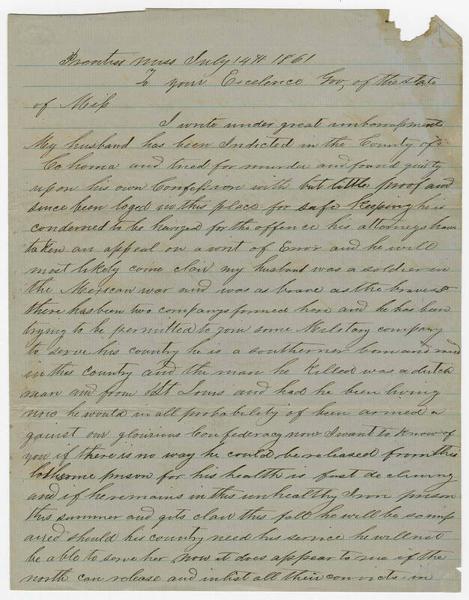 Prentiss Miss July 14th 1861
To your Excelence Gov, of the state
of Miss
I write under great embarrassments
My husband has been Indicted in the County of
Cohoma and tried for murder and found guilty
upon his own Confession with but little proof and
since been loged in this place for safe keeping he is
condemned to be hanged for the offence his attorneys have
taken an appeal on a writ of Error and he will
most likely come clair my husband was a soldier in
the Mexican war and was as brave as the bravest
there has been two companys formed here and he has been
trying to be permitted to join some Military company
to serve his country he is a southerner born and
in this country and the man he killed was a dutch
man and from St Louis and had he been living
now he would in all probability of been armed a
gainst our glorious Confederacy now I want to know of
you if there is no way he could be released from this
lothesome prison for his health is fast declining
and if he remains in this unhealthy Iron prison
this summer and gets clair this fall he will be so imp
aired should his country need his service he will not
be able to serve her now it does appear to me if the
north can release and inlist all their convicts in